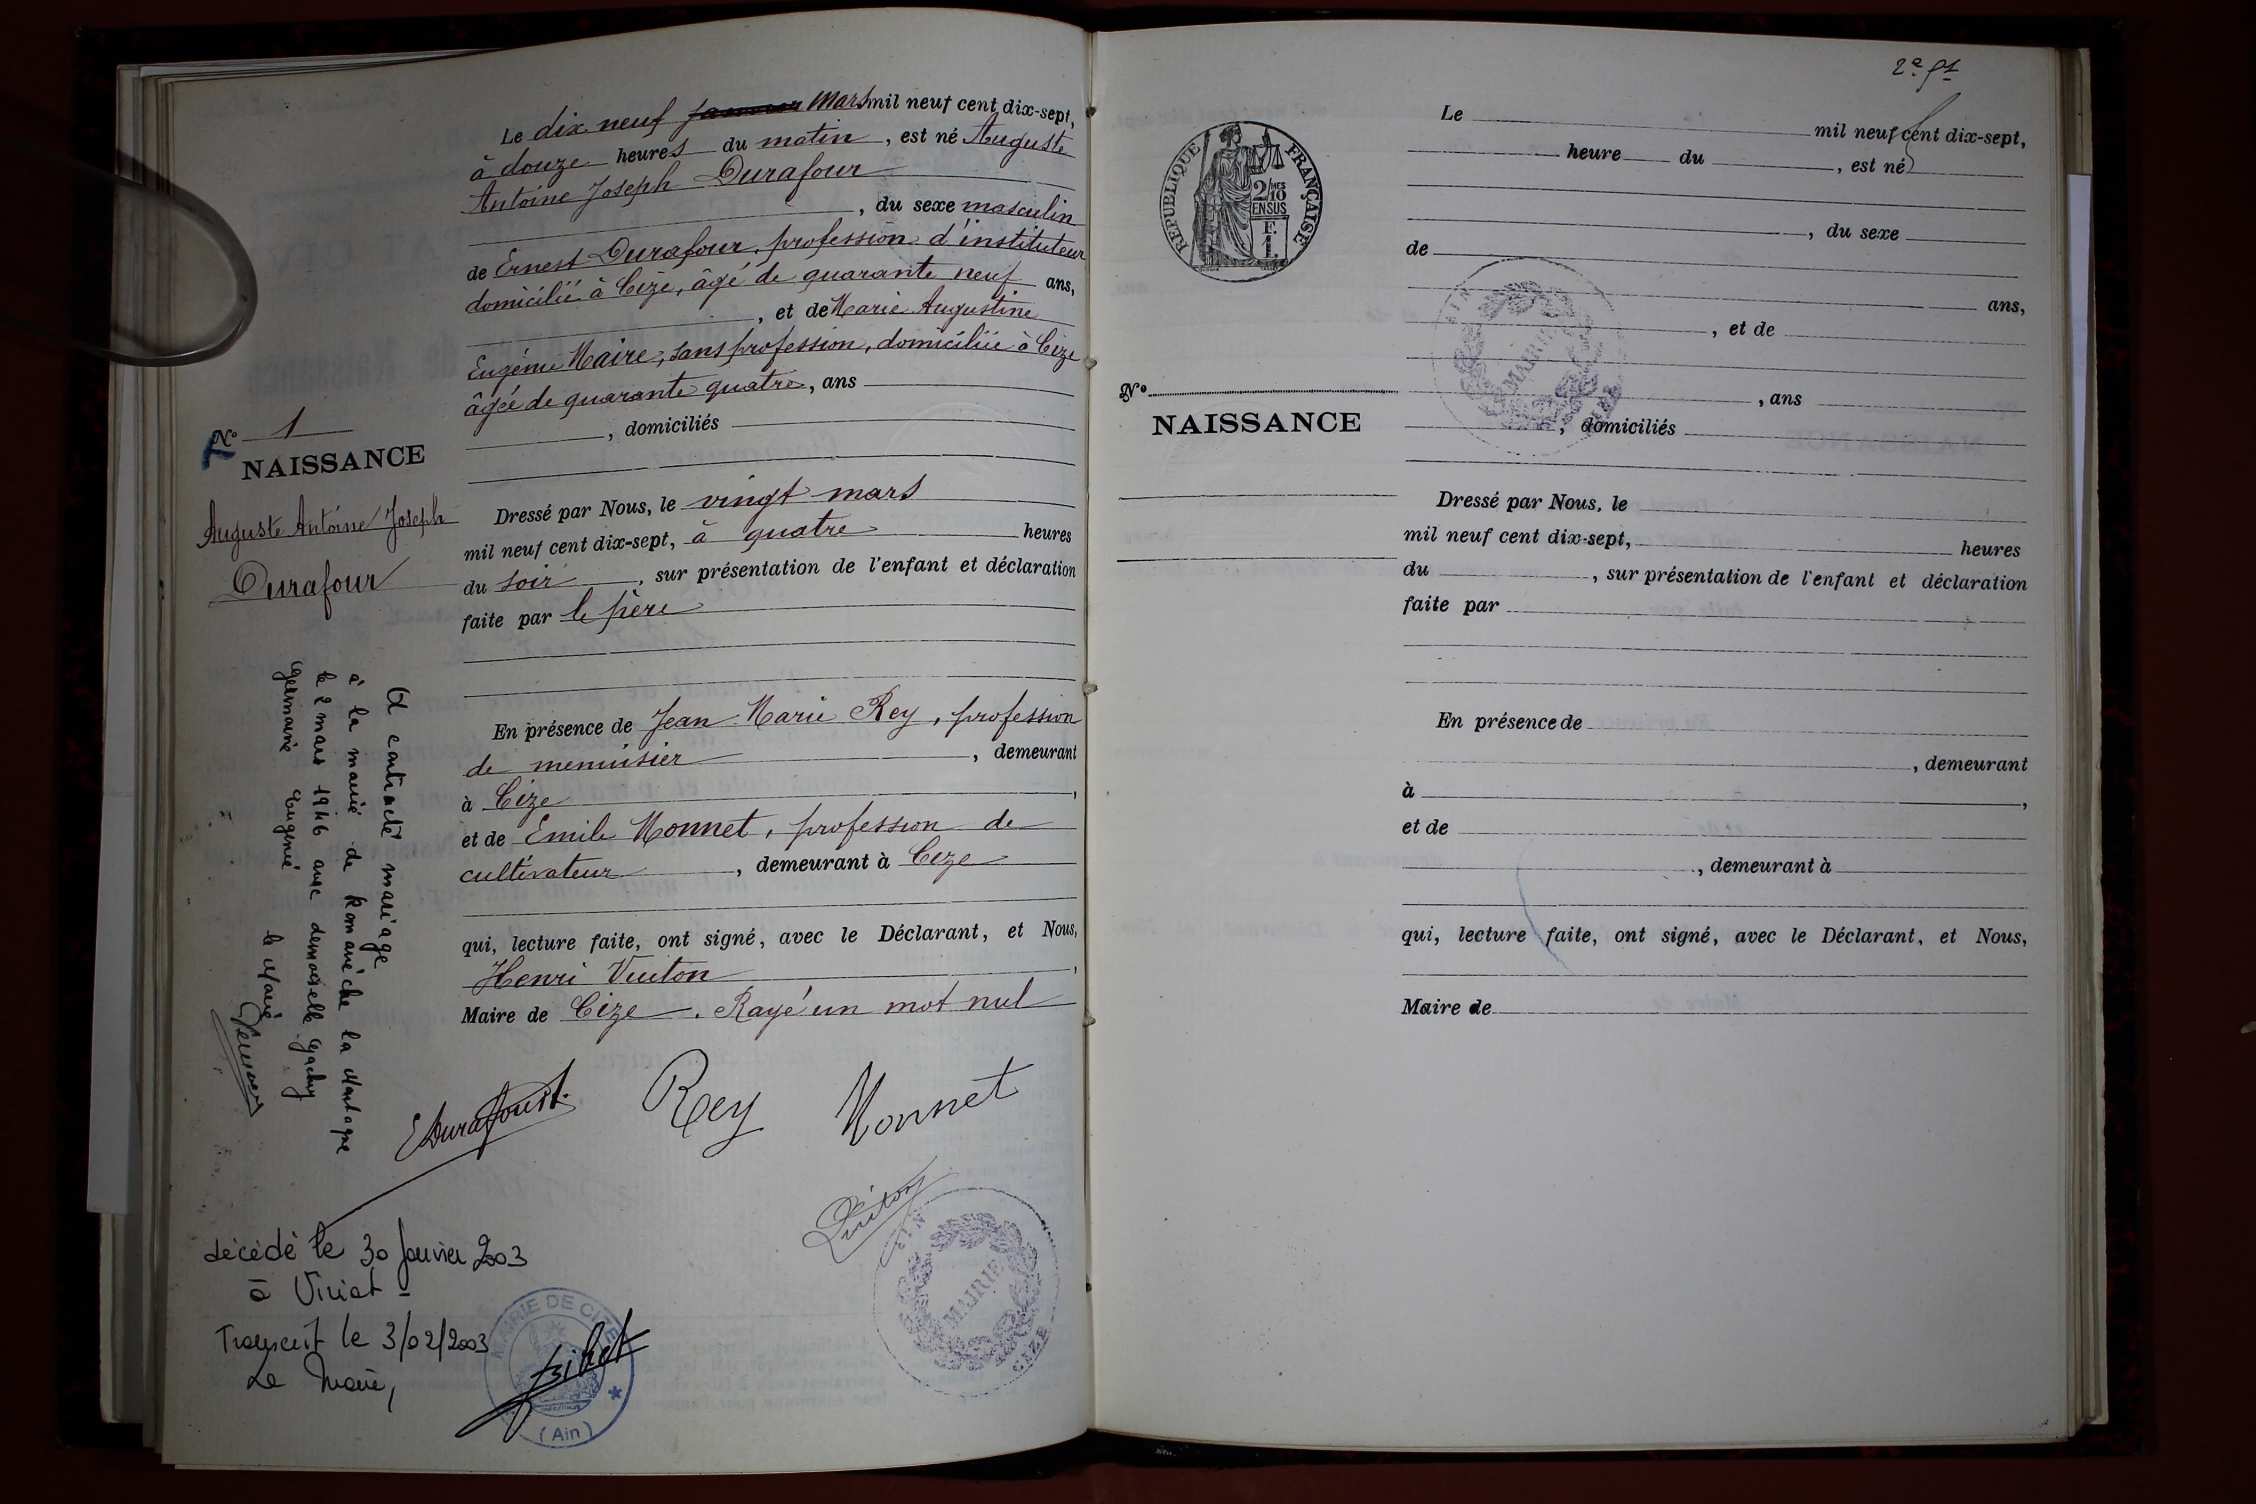 Le dix neuf janvier Mars mil neuf cent dix-sept,
à douze heures du matin, est né Auguste
Antoine Joseph Durafour
, du sexe masculin
de Ernest Durafour, profession d'instituteur
domicilié à Cize, âgé de quarante neuf ans,
, et de Marie Augustine
Eugénie Maire, sans profession, domiciliée à Cize
âgée de quarante quatre, ans
, domiciliés
Dressé par Nous, le vingt mars
mil neuf cent dix-sept, à quatre heures
du soir, sur présentation de l'enfant et déclaration
faite par le père
En présence de Jean Marie Rey, profession
de menuisier, demeurant
à Cize,
et de Emile Monnet, profession de
cultivateur, demeurant à Cize
qui, lecture faite, ont signé, avec le Déclarant, et Nous,
Henri Vuiton,
Maire de Cize. Rayé un mot nul
EDurafour
Rey
Monnet
Vuiton
AIN
MAIRIE
CIZE
N° 1
NAISSANCE
Auguste Antoine Joseph
Durafour
A contracté mariage
à la mairie de Romanèche la Montagne
le 2 mars 1946 avec demoiselle Gachy
Germaine Eugénie
le Maire
décédé le 30 Janvier 2003
à Viriat
Transcrit le 3/02/2003
Le Maire,
MAIRIE DE CIZE
(Ain)
2e ft
RÉPUBLIQUE FRANÇAISE
2/10MES
EN SUS
F.
1.
N°
NAISSANCE
Le
mil neuf cent dix-sept,
heure du, est né
, du sexe
de
ans,
, et de
, ans
, domiciliés
AIN
MAIRIE
CIZE
Dressé par Nous, le
mil neuf cent dix-sept, heures
du, sur présentation de l'enfant et déclaration
faite par
En présence de
, demeurant
à,
et de
, demeurant à
qui, lecture faite, ont signé, avec le Déclarant, et Nous,
Maire de